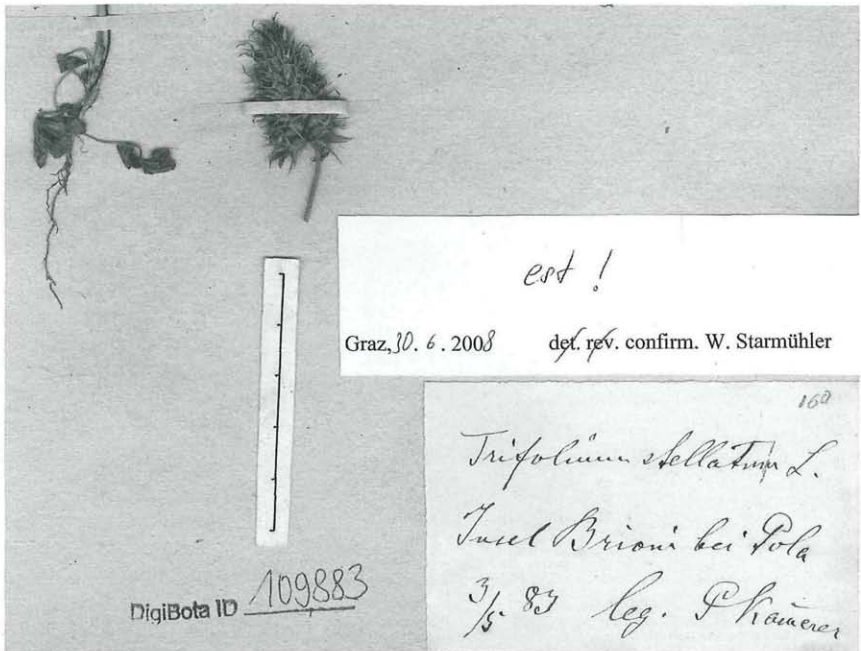 est !
Graz, 30. 6. 2008 det. rev. confirm. W. Starmühler
160
Trifolium stellatum L.
Insel Brioni bei Pola
3/5 83 leg. P Kamerer
DigiBota ID 109883